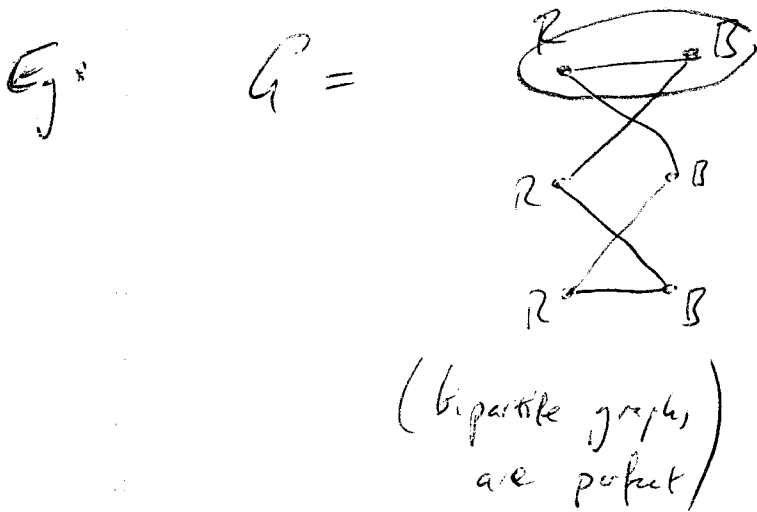 Eg: G =
R B
R B
R B
(bipartite graphs
are perfect)